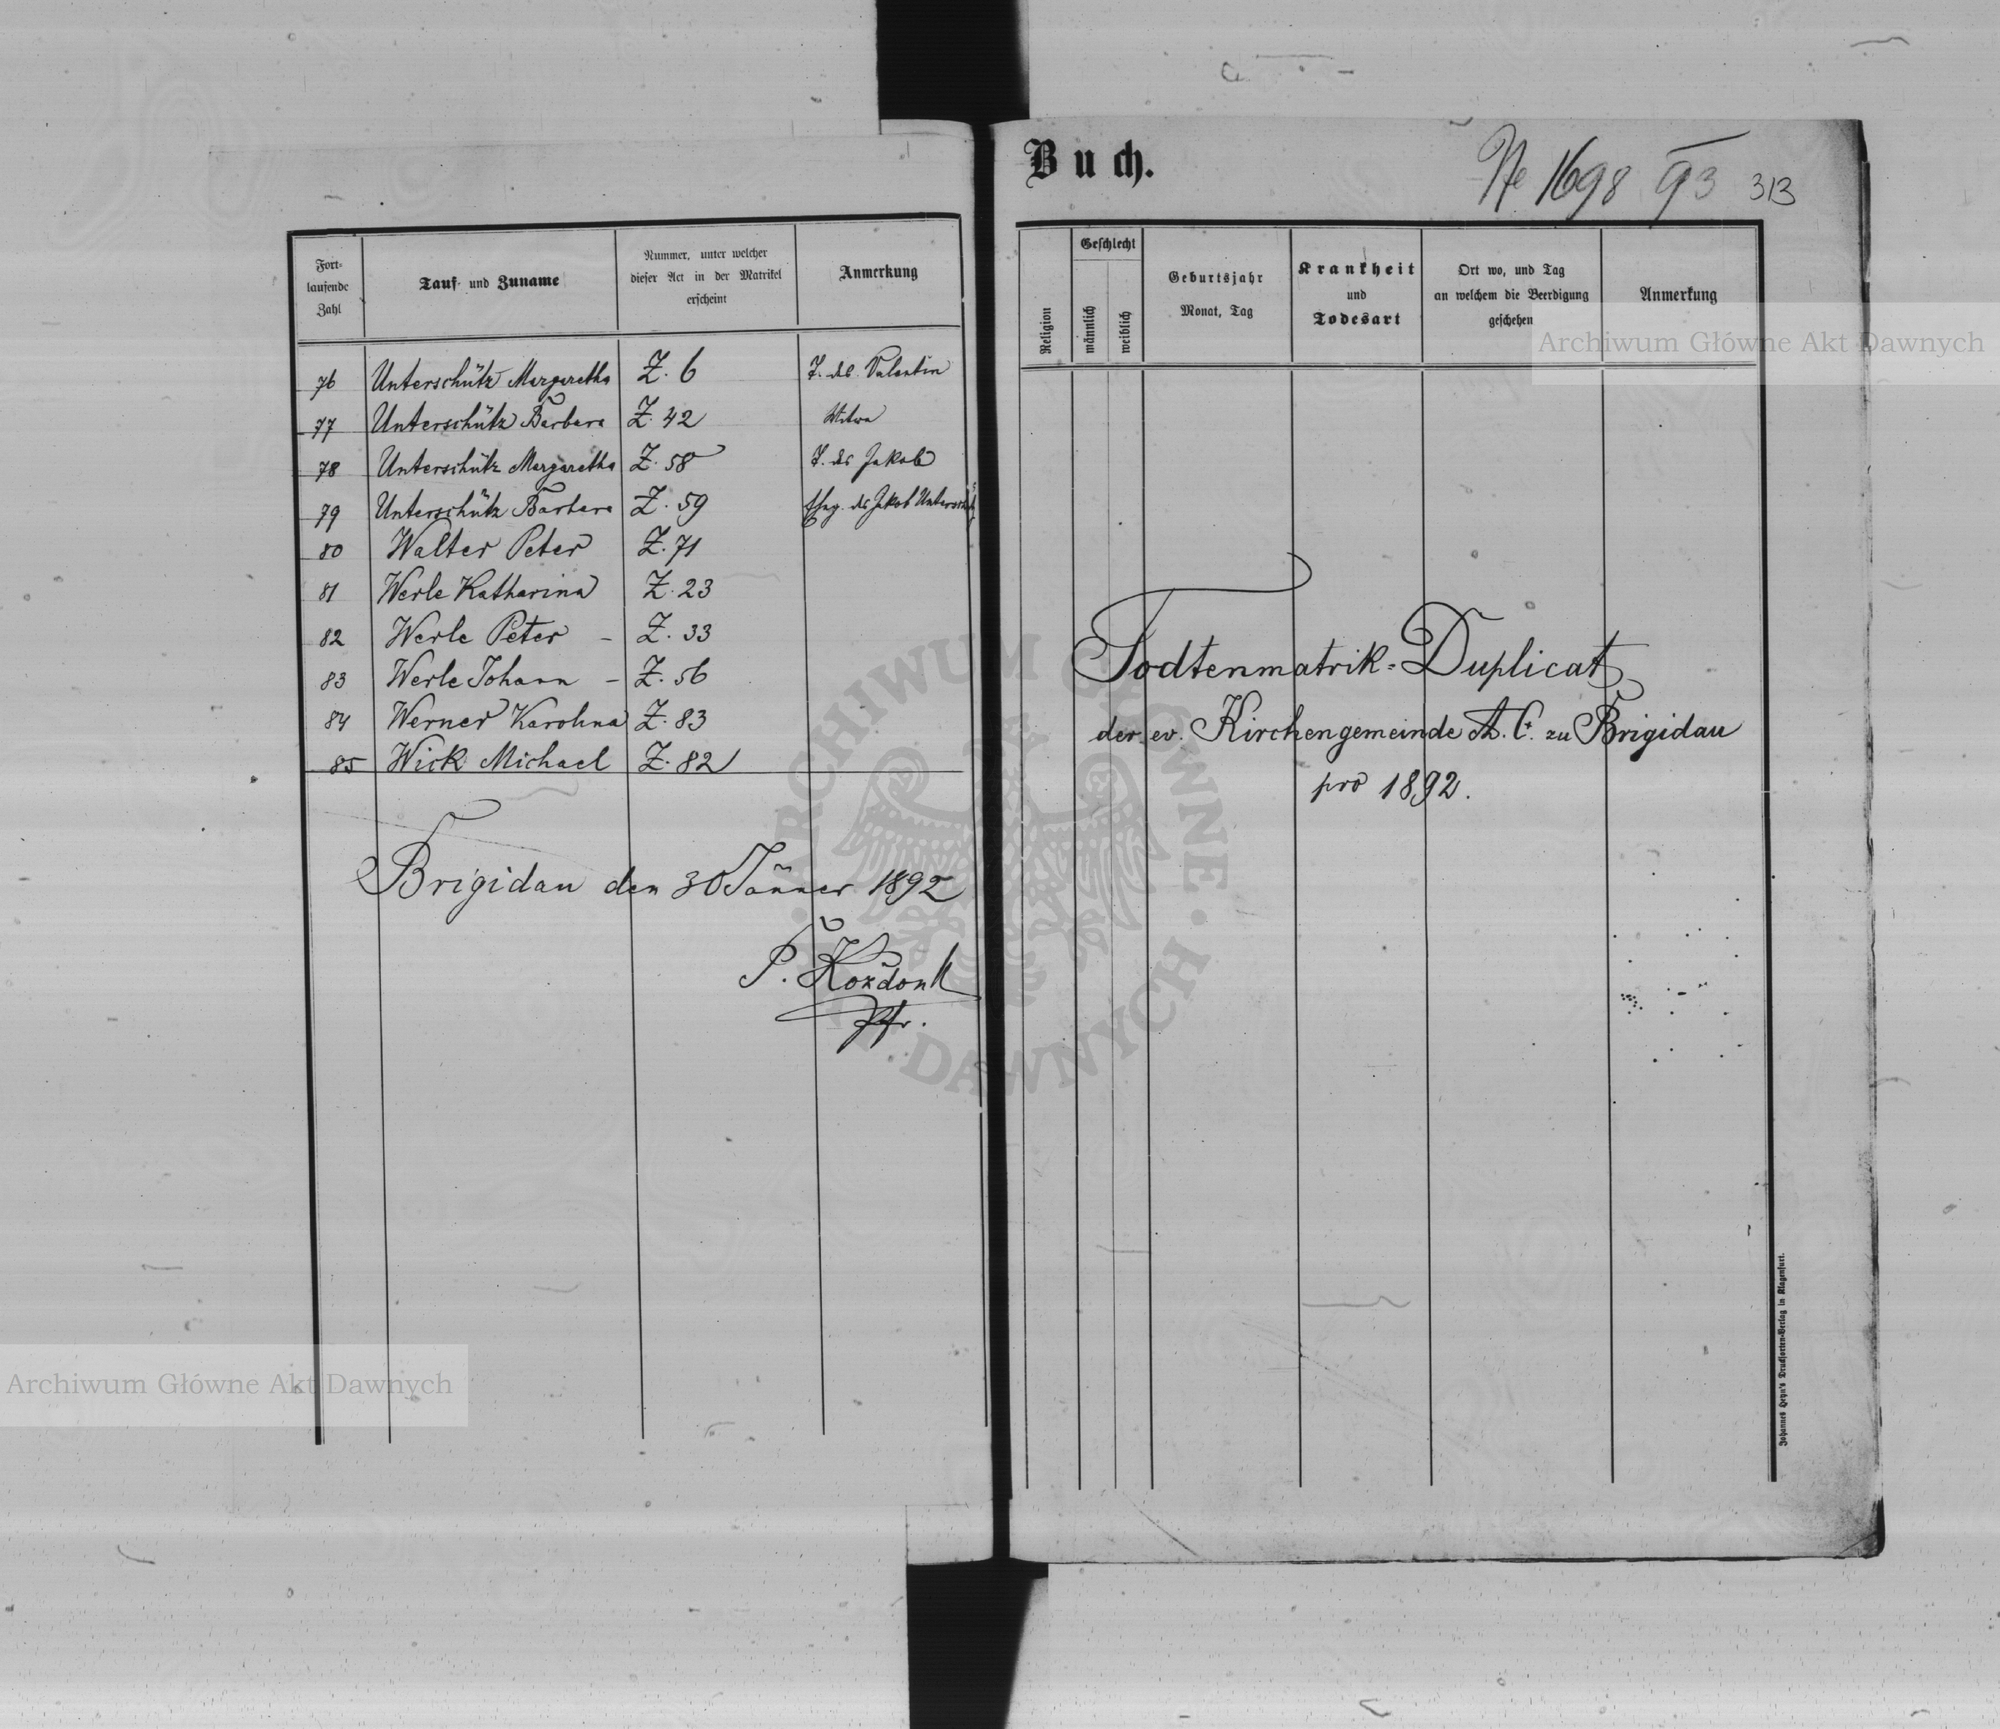 Fort-
laufende
Zahl
Tauf- und Zuname
Nummer, unter welcher
dieser Act in der Matrikel
erscheint
Anmerkung
76 Unterschütz Margaretha Z. 6 T. des Valentin
77 Unterschütz Barbara Z. 42 Witwe
78 Unterschütz Margaretha Z. 58 T. des Jakob
79 Unterschütz Barbara Z. 59 des Jakob
80 Walter Peter Z. 71
81 Werle Katharina Z. 23
82 Werle Peter – Z. 33
83 Werle Johann – Z. 56
84 Werner Karolina Z. 83
85 Wick Michael Z. 82
Brigidau den 30 Jänner 1892
Pfr.
Buch.
No 1698 93 313
Religion
Geschlecht
männlich
weiblich
Geburtsjahr
Monat, Tag
Krankheit
und
Todesart
Ort wo, und Tag
an welchem die Beerdigung
geschehen
Anmerkung
Todtenmatrik-Duplicat
der ev. Kirchengemeinde A. C. zu Brigidau
pro 1892.
Johannes Heyn's Drucksorten-Verlag in Klagenfurt.
Archiwum Główne Akt Dawnych
Archiwum Główne Akt Dawnych
ARCHIWUM GŁÓWNE AKT DAWNYCH